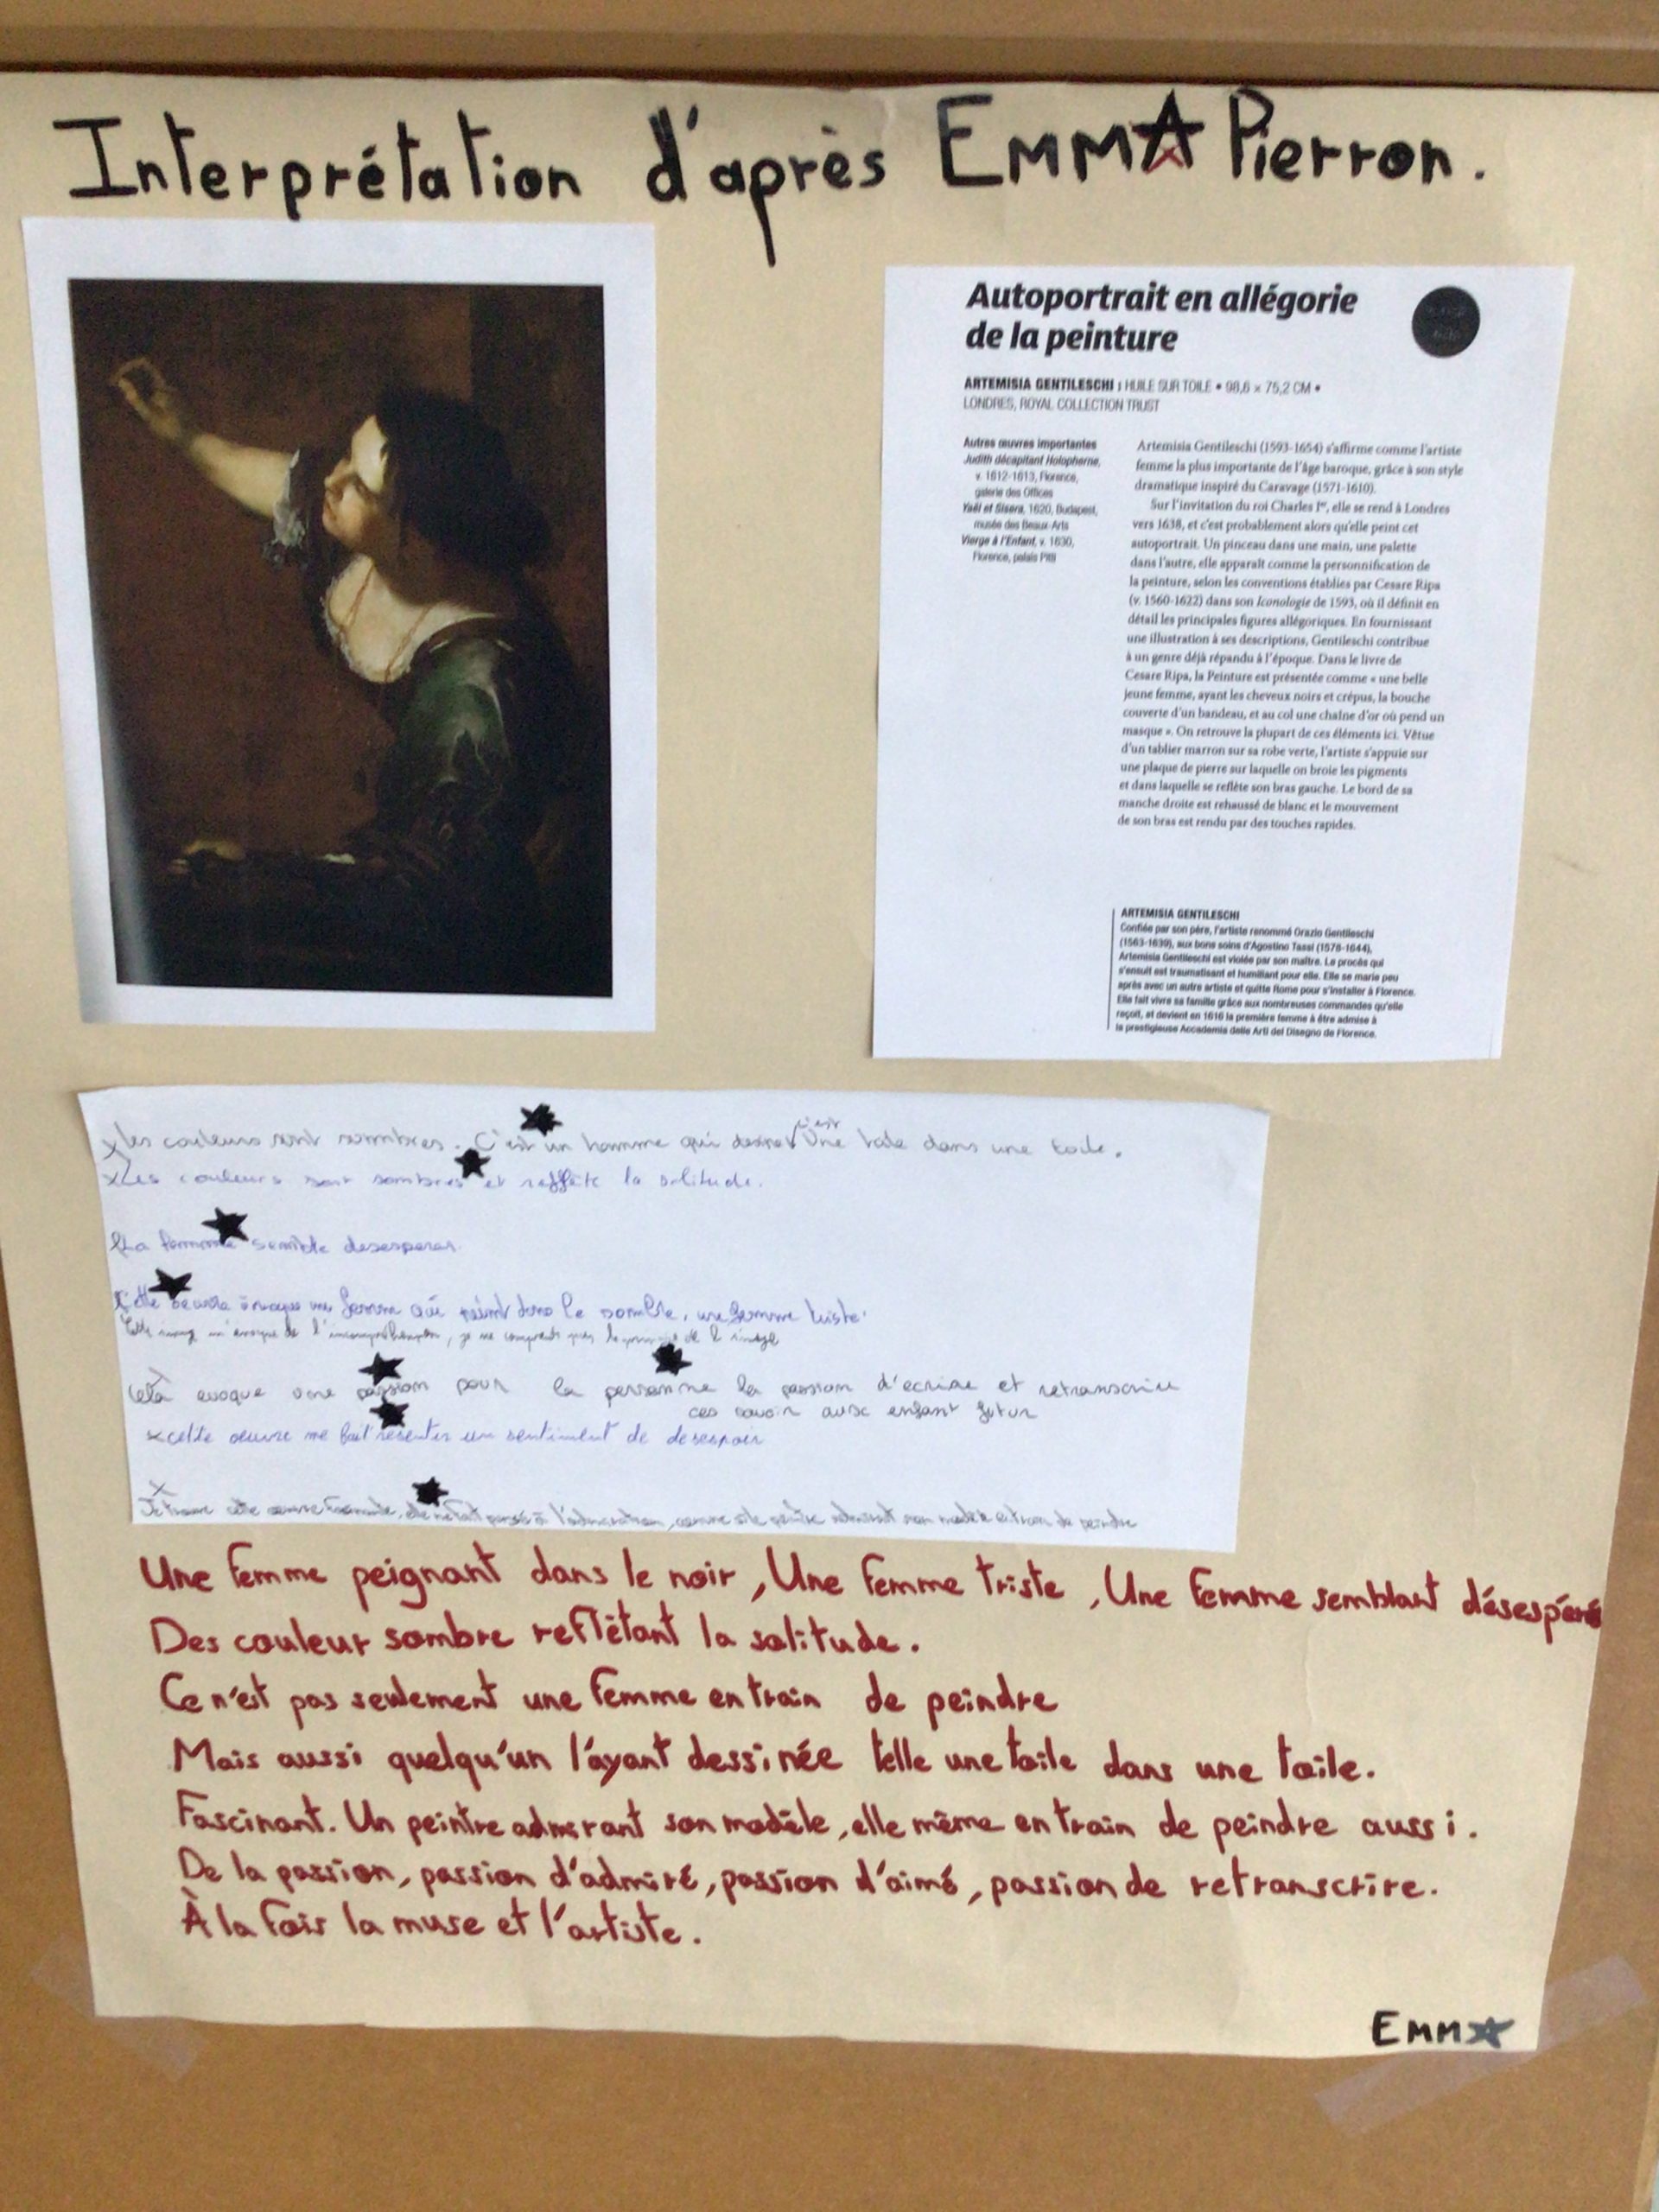 Interprétation d'après EMMA Pierron.
Autoportrait en allégorie
de la peinture
ARTEMISIA GENTILESCHI : HUILE SUR TOILE • 98,6 × 75,2 CM •
LONDRES, ROYAL COLLECTION TRUST
Autres œuvres importantes
Judith décapitant Holopherne,
v. 1612-1613, Florence,
galerie des Offices
Yaël et Sisera, 1620, Budapest,
musée des Beaux-Arts
Vierge à l'Enfant, v. 1630,
Florence, palais Pitti
Artemisia Gentileschi (1593-1654) s'affirme comme l'artiste
femme la plus importante de l'âge baroque, grâce à son style
dramatique inspiré du Caravage (1571-1610).
Sur l'invitation du roi Charles Ier, elle se rend à Londres
vers 1638, et c'est probablement alors qu'elle peint cet
autoportrait. Un pinceau dans une main, une palette
dans l'autre, elle apparaît comme la personnification de
la peinture, selon les conventions établies par Cesare Ripa
(v. 1560-1622) dans son Iconologie de 1593, où il définit en
détail les principales figures allégoriques. En fournissant
une illustration à ses descriptions, Gentileschi contribue
à un genre déjà répandu à l'époque. Dans le livre de
Cesare Ripa, la Peinture est présentée comme « une belle
jeune femme, ayant les cheveux noirs et crépus, la bouche
couverte d'un bandeau, et au col une chaîne d'or où pend un
masque ». On retrouve la plupart de ces éléments ici. Vêtue
d'un tablier marron sur sa robe verte, l'artiste s'appuie sur
une plaque de pierre sur laquelle on broie les pigments
et dans laquelle se reflète son bras gauche. Le bord de sa
manche droite est rehaussé de blanc et le mouvement
de son bras est rendu par des touches rapides.
ARTEMISIA GENTILESCHI
Confiée par son père, l'artiste renommé Orazio Gentileschi
(1563-1639), aux bons soins d'Agostino Tassi (1578-1644),
Artemisia Gentileschi est violée par son maître. Le procès qui
s'ensuit est traumatisant et humiliant pour elle. Elle se marie peu
après avec un autre artiste et quitte Rome pour s'installer à Florence.
Elle fait vivre sa famille grâce aux nombreuses commandes qu'elle
reçoit, et devient en 1616 la première femme à être admise à
la prestigieuse Accademia delle Arti del Disegno de Florence.
x les couleurs sont sombres. C'est un homme qui dessine c'est Une toile dans une toile.
x Les couleurs sont sombres et reffléte la solitude.
La femme semble desesperer
Cette oeuvre évoque une femme qui peint dans le sombre, une femme triste.
Cette image m'évoque de l'incompréhension, je ne comprends pas de l'image
Cela evoque une passion pour la personne la passion d'ecrire et retranscrire
ces savoir aux enfant futur
x cette oeuvre me fait resentir un sentiment de desespoir
x
Je trouve cette oeuvre fascinante, elle me fait penser à l'admiration, comme si le peintre admirait son modèle en train de peindre
Une femme peignant dans le noir, Une femme triste, Une femme semblant désespéré
Des couleur sombre reflétant la solitude.
Ce n'est pas seulement une femme en train de peindre
Mais aussi quelqu'un l'ayant dessinée telle une toile dans une toile.
Fascinant. Un peintre admirant son modèle, elle même en train de peindre aussi.
De la passion, passion d'admiré, passion d'aimé, passion de retranscrire.
À la fois la muse et l'artiste.
EMMA